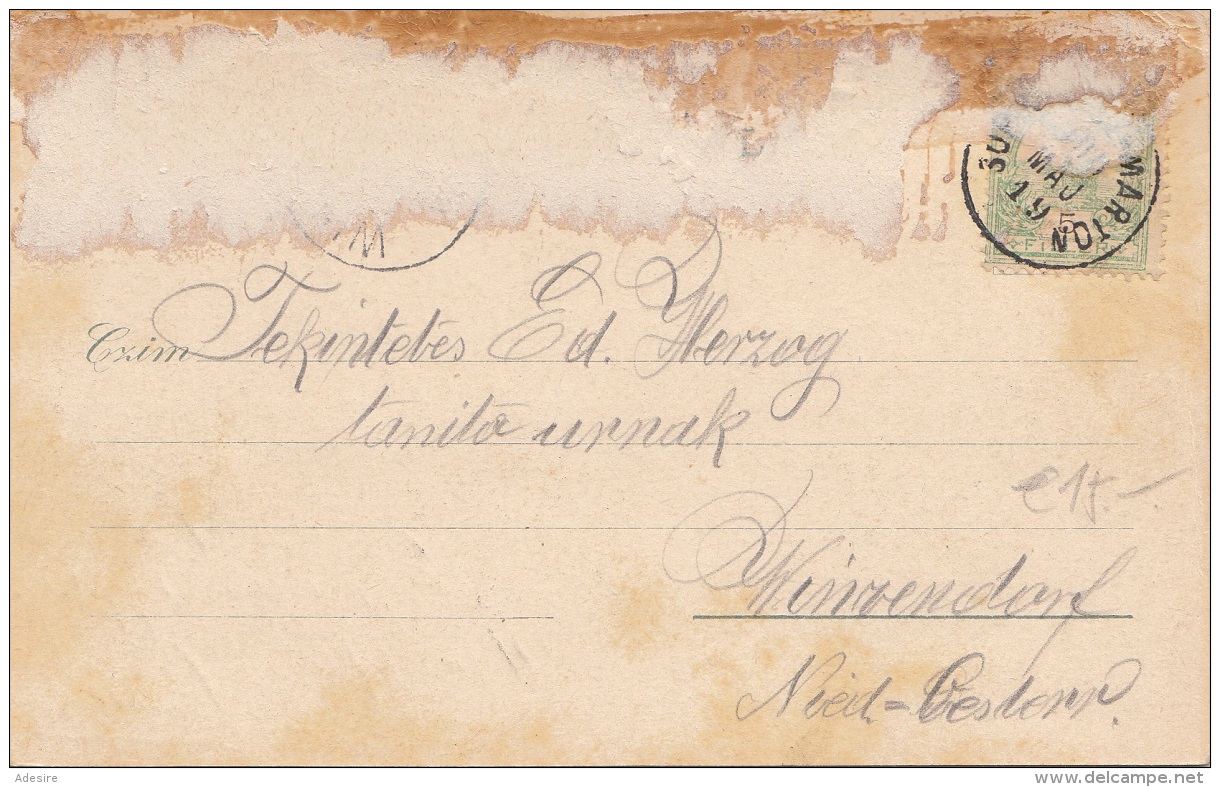 MAJ
19
MARTON
5
FI
W
Czim Tekintetés Ed. Herzog
tanitó urnak
€ 15.-
Winzendorf
Nied=Oesterr.
Adesire
delcampe.net